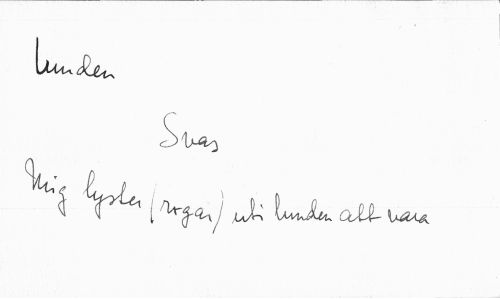 lunden
Svas
Mig lyster (rogar) uti lunden att vara